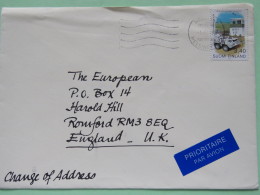 The European
P.O. Box 14
Harold Hill
Romford RM3 8EQ
England - U.K.
Change of Address
PRIORITAIRE
PAR AVION